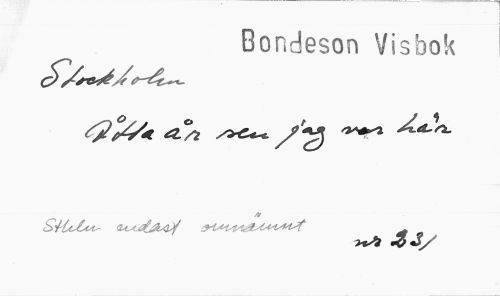 Bondeson Visbok
Stockholm
Åtta år sen jag var här
Sthlm endast omnämnt
nr 231